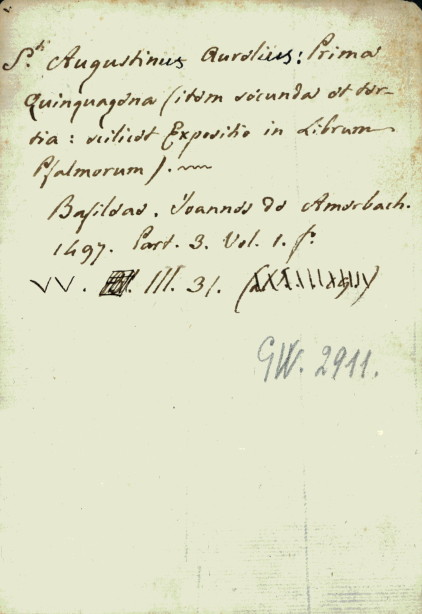 S.ti Augustinus Aurelius: Prima
Quinquagena (item secunda et ter-
tia: scilicet Expositio in Librum
Psalmorum).
Basileae. Joannes de Amerbach.
1497. Part. 3. Vol. 1. f.
VV. III. 31.
GW. 2911.